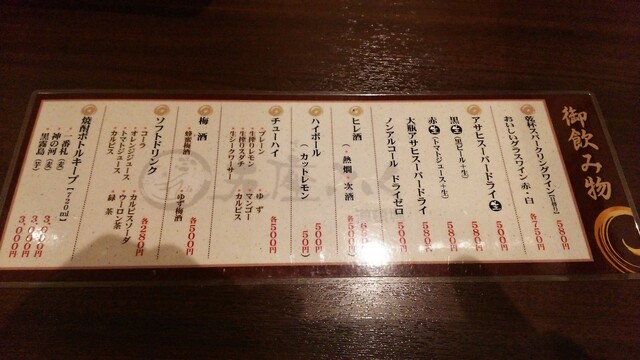 御飲み物
乾杯スパークリングワイン 580円
おいしいグラスワイン 赤・白 各750円
アサヒスーパードライ 生 500円
黒生（黒ビール＋生） 580円
赤生（トマトジュース＋生） 580円
大瓶アサヒスーパードライ 580円
ノンアルコール ドライゼロ 500円
ヒレ酒
（熱燗、次酒 各500円）
ハイボール 500円
（カットレモン 50円）
チューハイ 各500円
・プレーン
・生搾りレモン
・生搾りスダチ
・生シークワーサー
・ゆず
・マンゴー
・カルピス
梅酒 各500円
・蜂蜜梅酒
・ゆず梅酒
ソフトドリンク 各280円
・コーラ
・オレンジジュース
・トマトジュース
・カルピス
・カルピスソーダ
・ウーロン茶
・緑茶
焼酎ボトルキープ【720ml】
一番札（麦） 3,000円
神の河（麦） 3,000円
黒霧島（芋） 3,000円